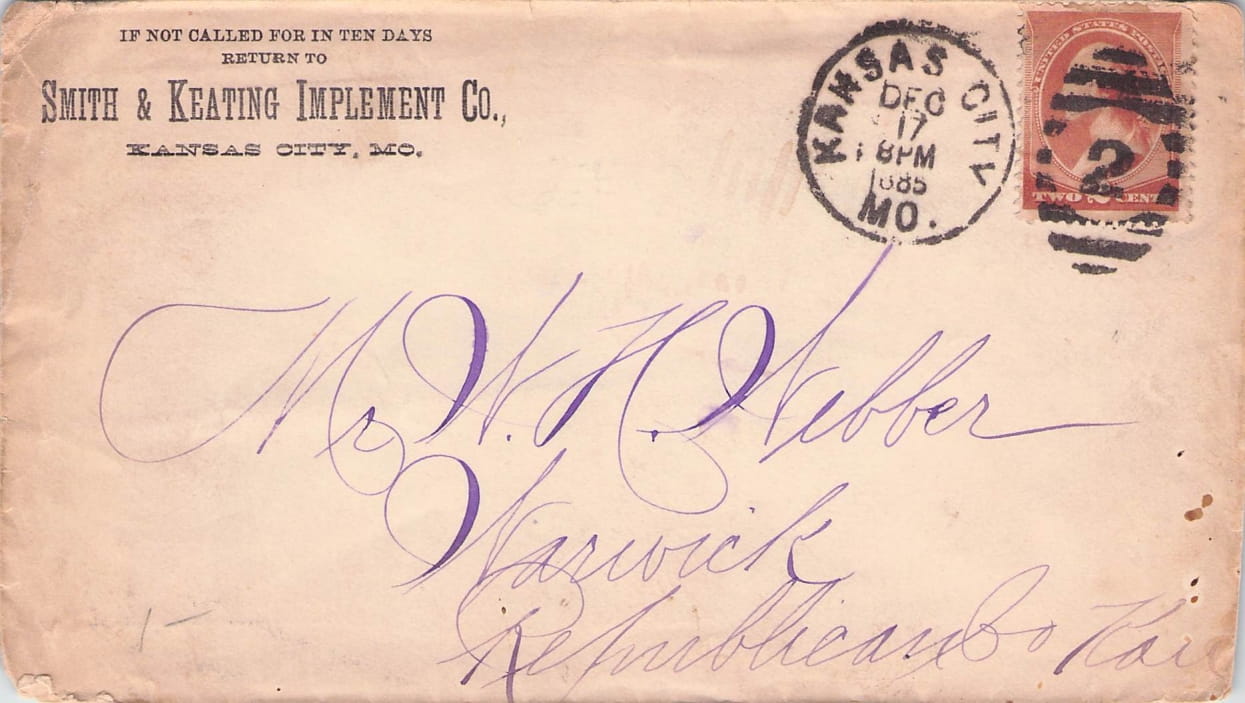 IF NOT CALLED FOR IN TEN DAYS
RETURN TO
SMITH & KEATING IMPLEMENT CO.,
KANSAS CITY, MO.
KANSAS CITY
DEC
17
8PM
1885
MO.
UNITED STATES POSTAGE
2
TWO 2 CENTS
Mr W. H. Webber
Warwick
Republican Co